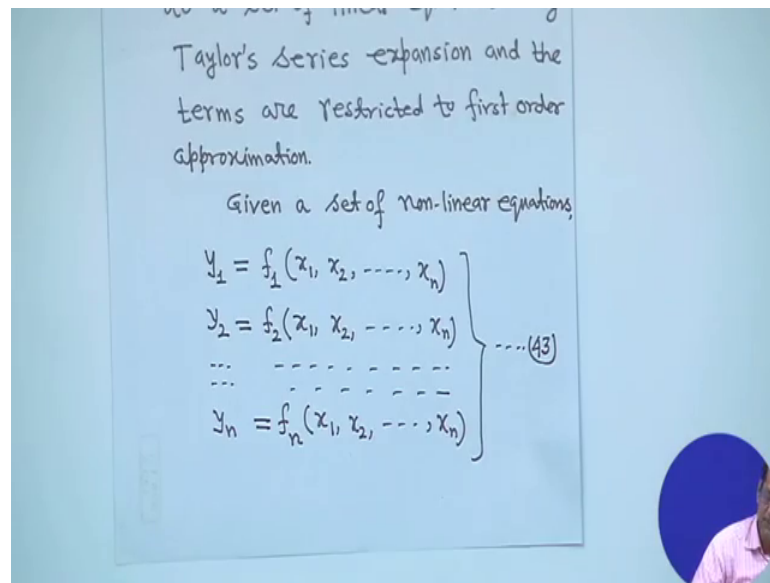 Taylor's series expansion and the
terms are restricted to first order
approximation.
Given a set of non-linear equations,
y₁ = f₁(x₁, x₂, ----, xₙ)
y₂ = f₂(x₁, x₂, ----, xₙ) ----(43)
--- - - - - - - - - -
--- - - - - - - -
yₙ = fₙ(x₁, x₂, ---, xₙ)